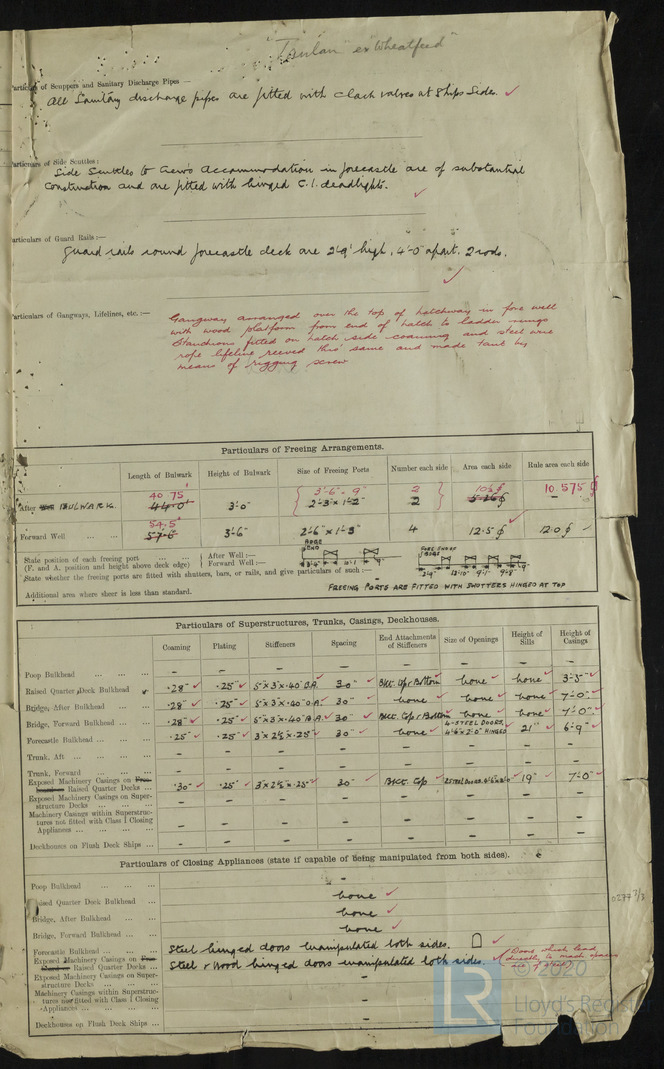 "Taulan" ex "Wheatfeed"
articulars of Scuppers and Sanitary Discharge Pipes —
All Sanitary discharge pipes are fitted with clack valves at Ships Sides. ✓
articulars of Side Scuttles :
Side Scuttles to crews accommodation in forecastle are of substantial
construction and are fitted with hinged C.I. deadlights.
✓
articulars of Guard Rails :—
Guard rails round forecastle deck are 2'-9" high, 4'-0" apart. 2 rods.
✓
articulars of Gangways, Lifelines, etc. :—
Gangway arranged over the top of hatchway in fore well
with wood platform from end of hatch to ladder rungs
Stanchions fitted on hatch side coaming and steel wire
rope lifeline reeved thro' same and made taut by
means of rigging screw
Particulars of Freeing Arrangements.
Length of Bulwark Height of Bulwark Size of Freeing Ports Number each side Area each side Rule area each side
40.75' 3'-6" - 9" 2 10½ 10.575
After BULWARK 44.0' 3'-0" 2'-3" x 1'-2" 2 —
54.5'
Forward Well 57.6' 3'-6" 2'-6" x 1'-3" 4 12.5 12.0
State position of each freeing port After Well :—
(F. and A. position and height above deck edge) Forward Well :—
State whether the freeing ports are fitted with shutters, bars, or rails, and give particulars of such :—
FREEING PORTS ARE FITTED WITH SHUTTERS HINGED AT TOP
Additional area where sheer is less than standard.
Particulars of Superstructures, Trunks, Casings, Deckhouses.
Coaming Plating Stiffeners Spacing End Attachments of Stiffeners Size of Openings Height of Sills Height of Casings
Poop Bulkhead — — — — — — — —
Raised Quarter Deck Bulkhead .28" .25" 5"x3"x.40" B.A. 30" Bkt. Top & Bottom none none 3'-3"
Bridge, After Bulkhead .28" .25" 5"x3"x.40" B.A. 30" none none none 7'-0"
Bridge, Forward Bulkhead .28" .25" 5"x3"x.40" B.A. 30" Bkt. Top & Bottom none none 7'-0"
Forecastle Bulkhead .25" .25" 3"x2½"x.25" 30" none 4-STEEL DOORS, 4'-6"x2'-0" HINGED 21" 6'-9"
Trunk, Aft — — — — — — — —
Trunk, Forward — — — — — — — —
Exposed Machinery Casings on Free-
board or Raised Quarter Decks .30" .25" 3"x2½"x.25" 30" Bkt. Top 2 STEEL DOORS. 19" 7'-0"
Exposed Machinery Casings on Super-
structure Decks — — — — — — — —
Machinery Casings within Superstruc-
tures not fitted with Class I Closing
Appliances — — — — — — — —
Deckhouses on Flush Deck Ships — — — — — — — —
Particulars of Closing Appliances (state if capable of being manipulated from both sides).
Poop Bulkhead —
Raised Quarter Deck Bulkhead none ✓
Bridge, After Bulkhead none ✓
Bridge, Forward Bulkhead none ✓
Forecastle Bulkhead Steel hinged doors manipulated both sides. ✓
Exposed Machinery Casings on Free-
board or Raised Quarter Decks Steel & Wood hinged doors manipulated both sides. ✓ Doors which lead
directly to mach. spaces
Exposed Machinery Casings on Super-
structure Decks —
Machinery Casings within Superstruc-
tures not fitted with Class I Closing
Appliances —
Deckhouses on Flush Deck Ships —
0277 2/3
LR
© 2020
Lloyd's Register
Foundation